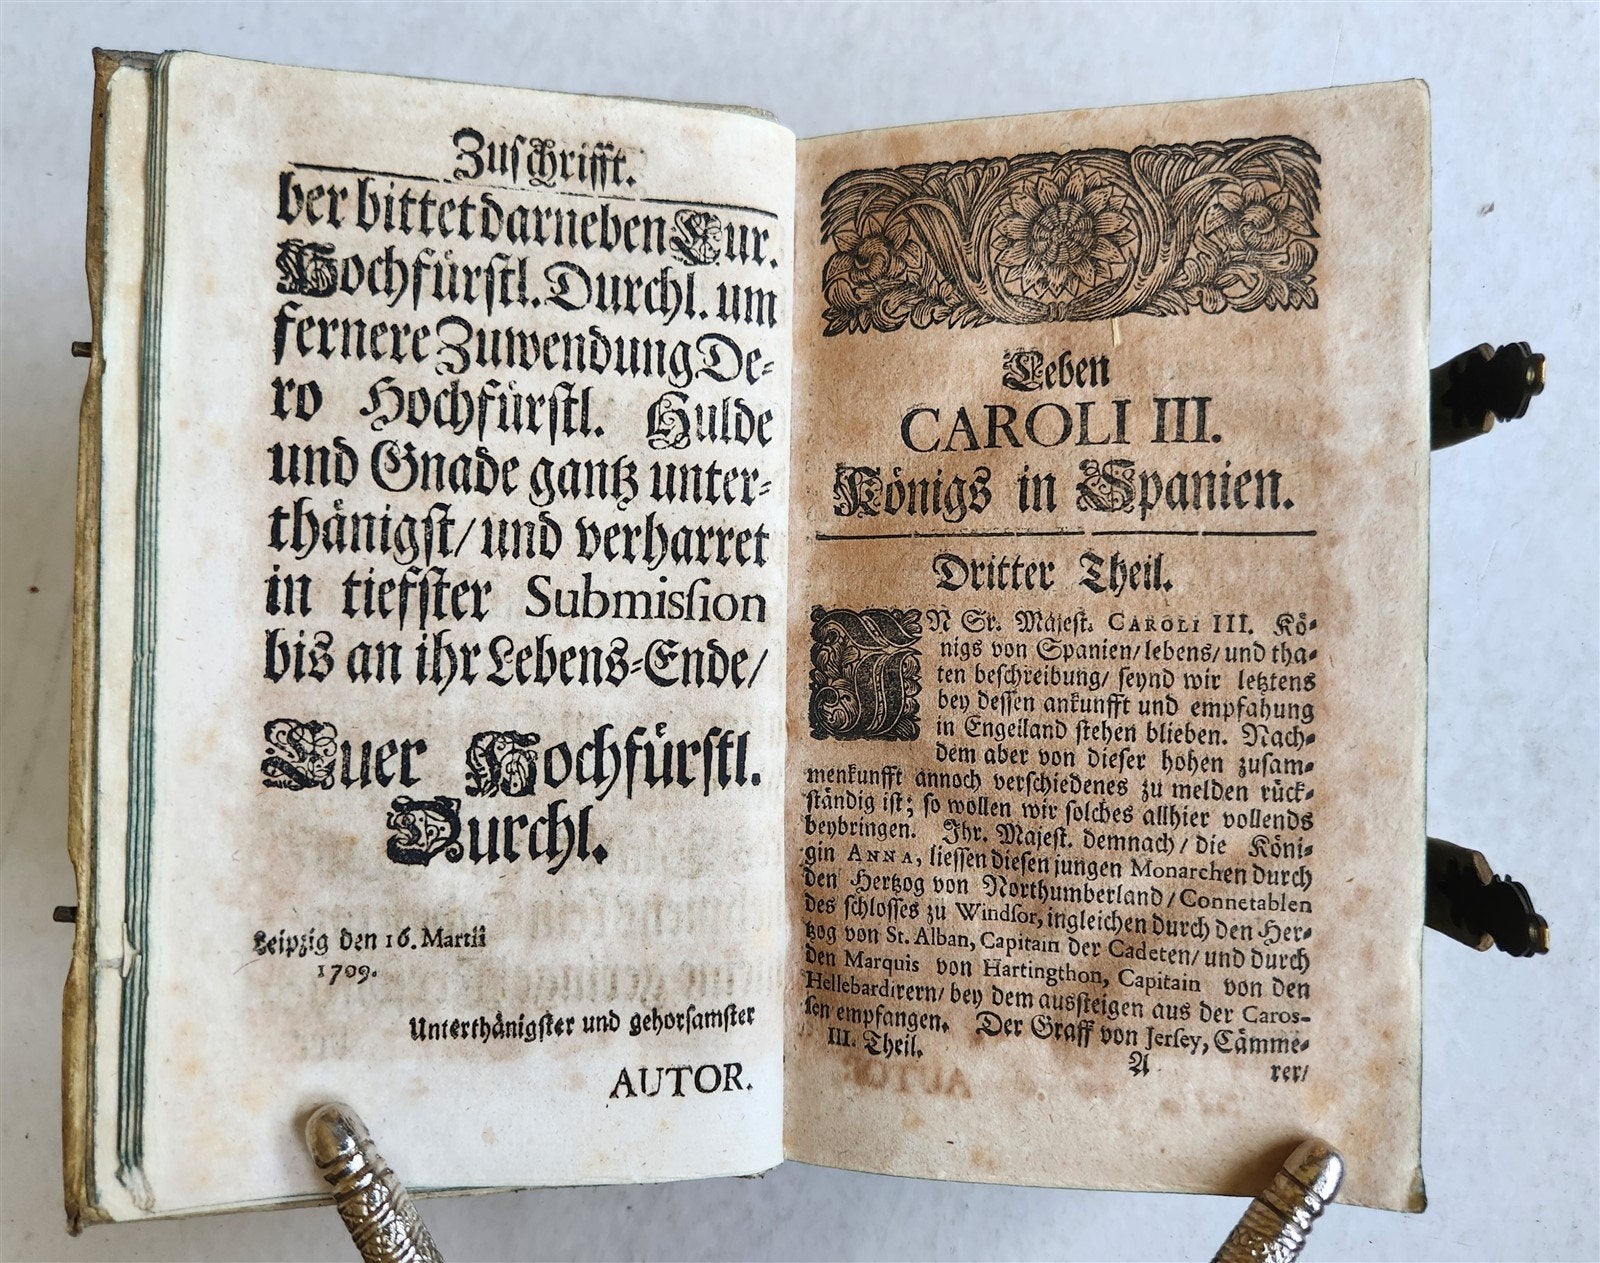 Zuschrifft.
ber bittet darneben Eur.
Hochfürstl. Durchl. um
fernere Zuwendung De-
ro Hochfürstl. Hulde
und Gnade gantz unter-
thänigst/ und verharret
in tiefster Submission
bis an ihr Lebens-Ende/
Euer Hochfürstl.
Durchl.
Leipzig den 16. Martii
1709.
Unterthänigster und gehorsamster
AUTOR.
Leben
CAROLI III.
Königs in Spanien.
Dritter Theil.
IN Sr. Majest. CAROLI III. Kö-
nigs von Spanien/ lebens/ und tha-
ten beschreibung/ seynd wir letztens
bey dessen ankunfft und empfahung
in Engelland stehen blieben. Nach-
dem aber von dieser hohen zusam-
menkunfft annoch verschiedenes zu melden rück-
ständig ist; so wollen wir solches allhier vollends
beybringen. Ihr. Majest. demnach/ die Köni-
gin ANNA, liessen diesen jungen Monarchen durch
den Hertzog von Northumberland/ Connetablen
des schlosses zu Windsor, ingleichen durch den Her-
tzog von St. Alban, Capitain der Cadeten/ und durch
den Marquis von Hartingthon, Capitain von den
Hellebardirern/ bey dem aussteigen aus der Caros-
sen empfangen. Der Graff von Jersey, Cämme-
III. Theil. A rer/